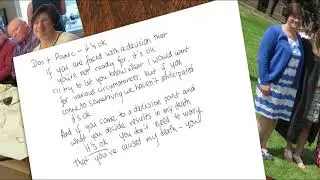 Don't Panic - it's ok
If you are faced with a decision that
you're not ready for, it's ok
I'll try to let you know what I would want
for various circumstances, but if you
come to something we haven't anticipated
it's ok
And if you come to a decision point and
what you decide results in my death
it's ok. You don't need to worry
that you've caused my death - you